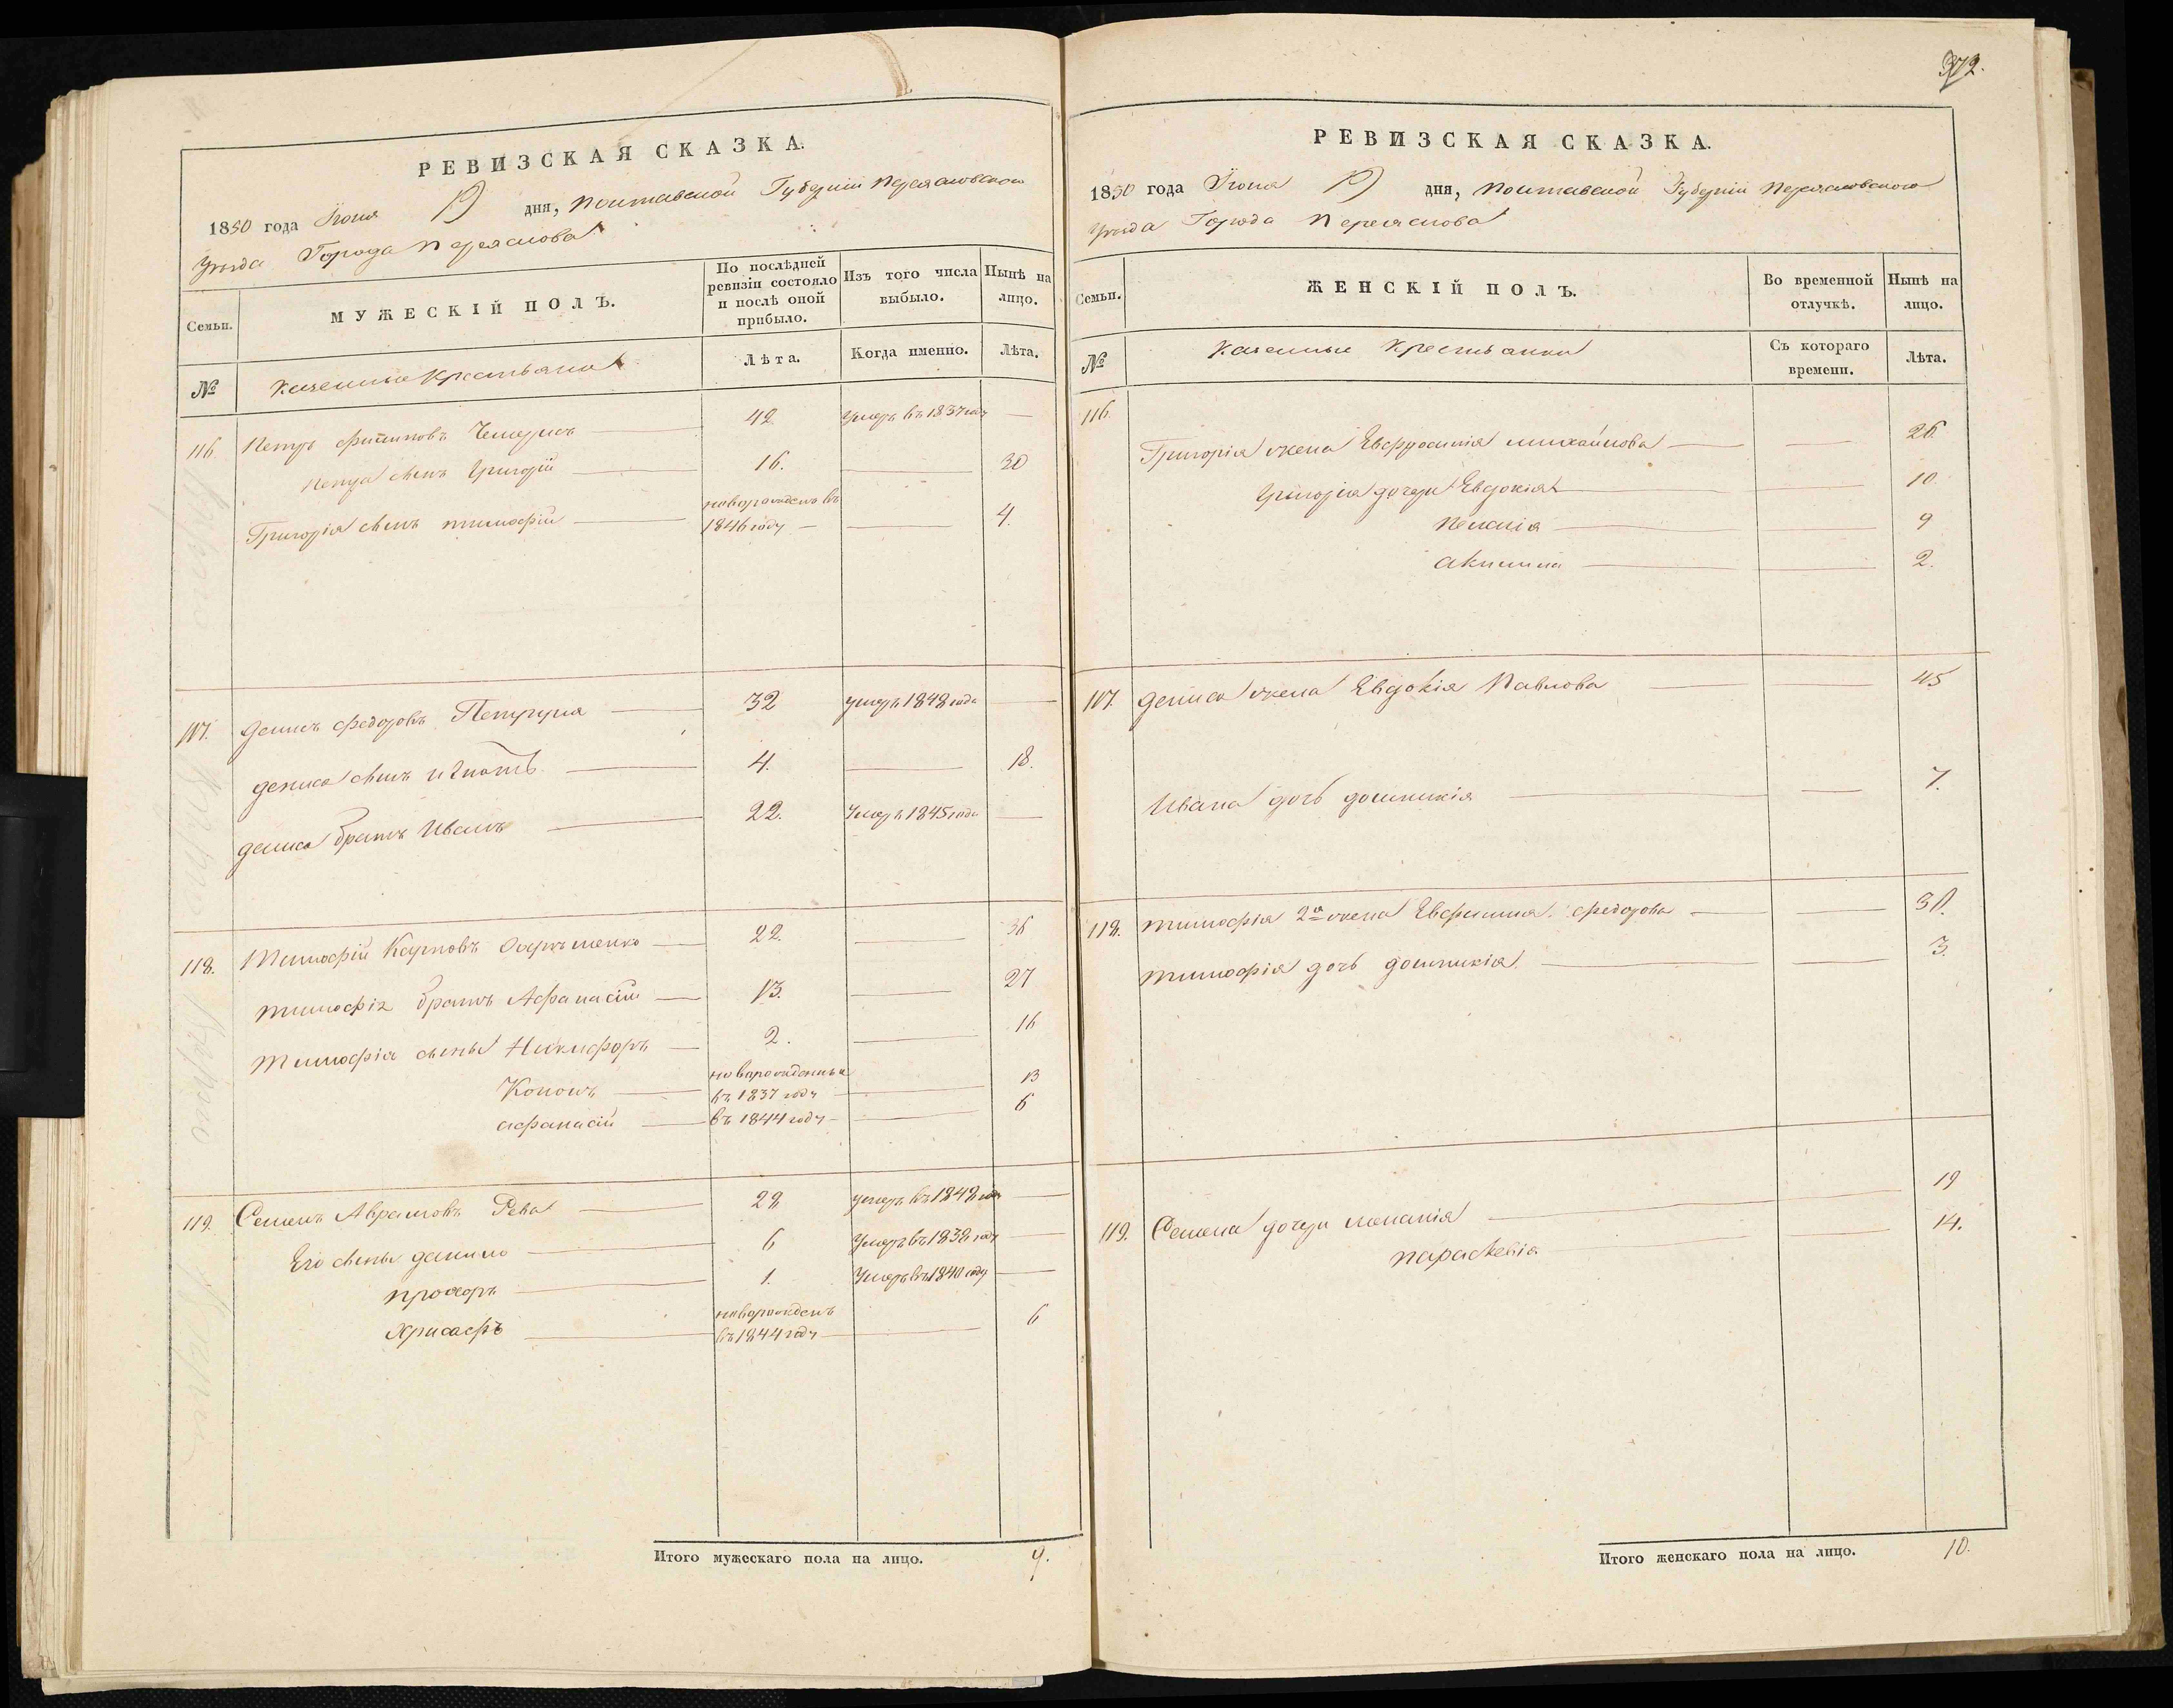 372.
РЕВИЗСКАЯ СКАЗКА.
1850 года Іюня 19 дня, Полтавской Губерніи Переясловского
Уезда Города Переяслова
Семьи. МУЖЕСКІЙ ПОЛЪ. По послѣдней ревизіи состояло и послѣ оной прибыло. Изъ того числа выбыло. Нынѣ на лицо.
№ Казенные Крестьяне Лѣта. Когда именно. Лѣта.
116. Петръ Филиповъ 42 Умеръ въ 1837 году —
Петра сынъ Григорій 16. — 30
Григорія сынъ Тимофій новорожденъ въ 1846 году — 4.
117. Денисъ Федоровъ Петруня 32 умеръ 1848 года —
Дениса сынъ Игнатъ 4. — 18.
Дениса братъ Иванъ 22. Умеръ 1845 года —
118. Тимофій Карповъ 22. — 38
Тимофія братъ Афанасій 13. — 27
Тимофія сыны Никифоръ 2. — 16
Кононъ новорожденные въ 1837 году — 13
Афанасій въ 1844 году — 6
119. Семенъ Аврамовъ Рева 28 умеръ въ 1848 году —
Его сыны Данило 6 Умеръ въ 1838 году —
Прохоръ 1. Умеръ въ 1840 году —
Хрисанфъ новорожденъ въ 1844 году — 6
Итого мужескаго пола на лицо. 9.
РЕВИЗСКАЯ СКАЗКА.
1850 года Іюня 19 дня, Полтавской Губерніи Переясловского
Уезда Города Переяслова
Семьи. ЖЕНСКІЙ ПОЛЪ. Во временной отлучкѣ. Нынѣ на лицо.
№ Казенные Крестьянки Съ котораго времени. Лѣта.
116.
Григорія жена Евфросинія Михайлова — 26
Григорія дочери Евдокія — 10
Пелагія — 9
Акилина — 2.
117. Дениса жена Евдокія Павлова — 45
Ивана дочь Домникія — 7.
118. Тимофія 2я жена Евфимія Федорова — 38.
Тимофія дочь Домникія — 3.
119. Семена дочери Меланія — 19
Параскевія — 14.
Итого женскаго пола на лицо. 10.